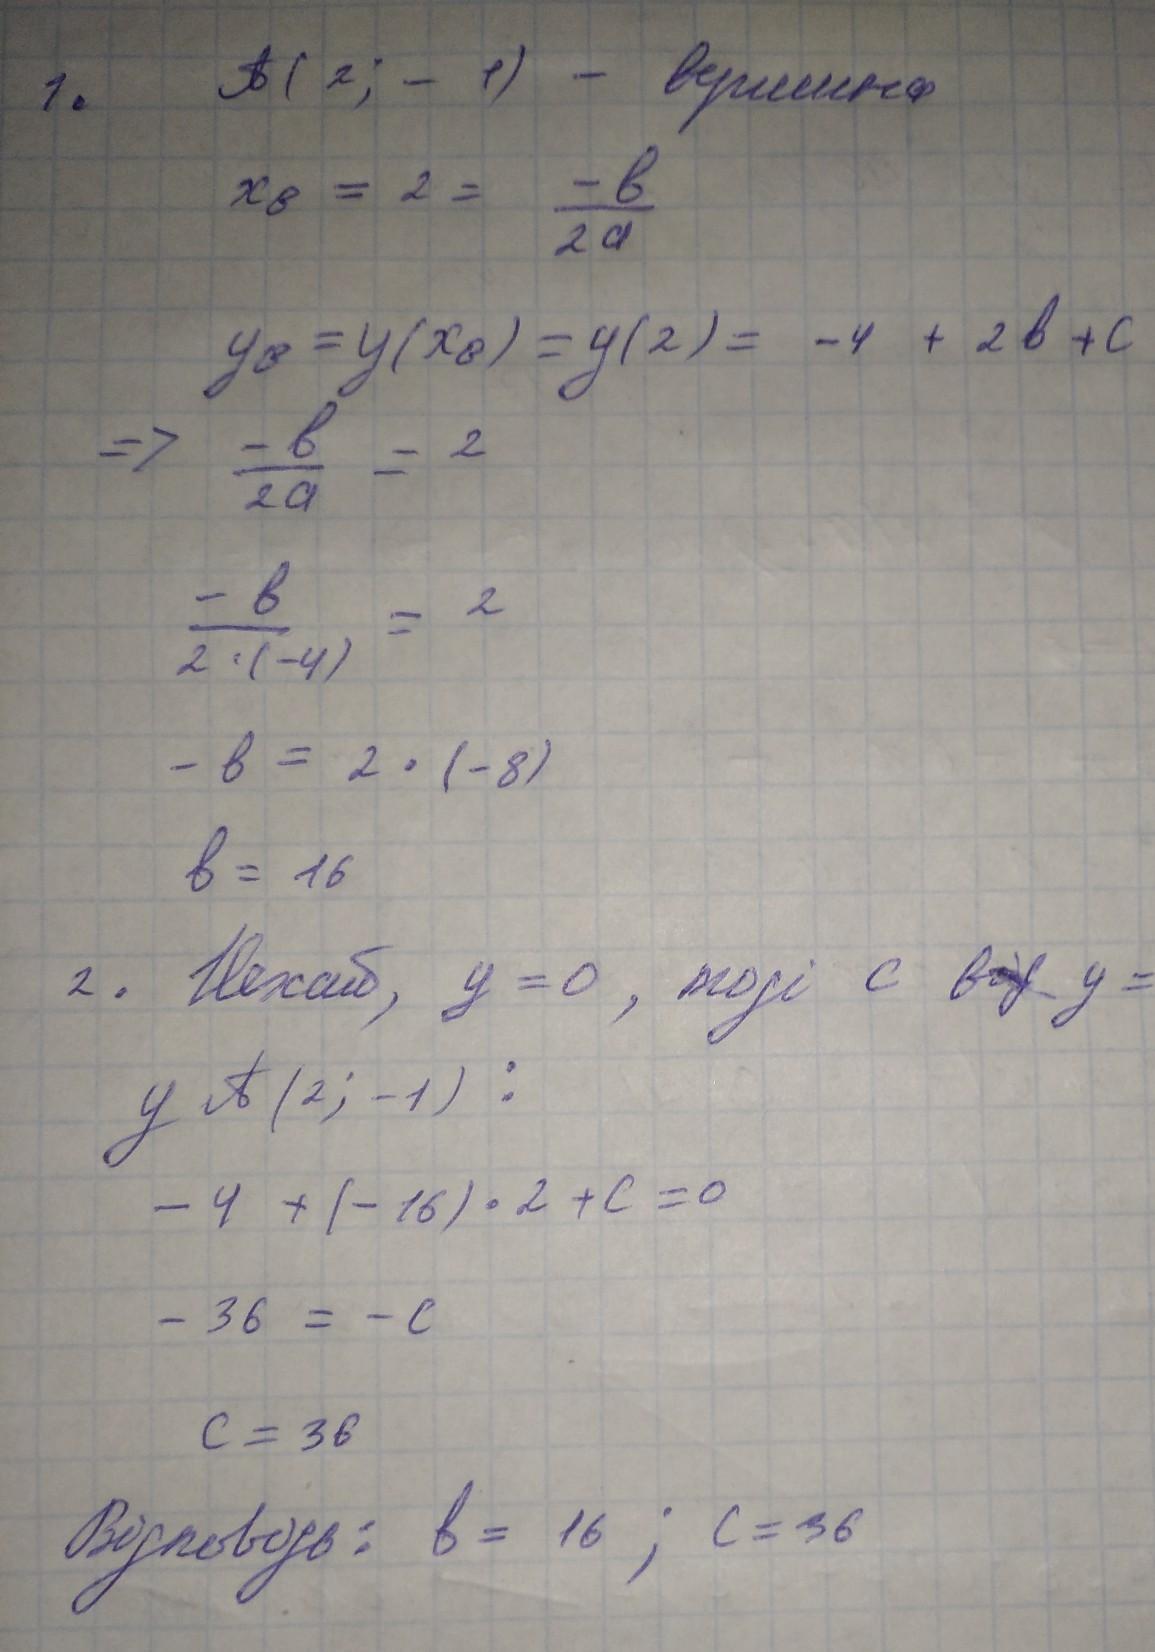 1. A(2; -1) - вершина
xв = 2 = -b/2a
yв = y(xв) = y(2) = -4 + 2b + c
=> -b/2a = 2
-b/2·(-4) = 2
-b = 2·(-8)
b = 16
2. Нехай, y = 0, тоді c y =
y A(2; -1):
-4 + (-16)·2 + c = 0
-36 = -c
c = 36
Відповідь: b = 16; c = 36